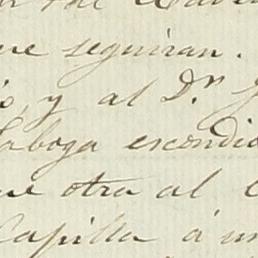 seguiran.
y al D.ⁿ
Taboga escondi
ue otra al
Capilla á un